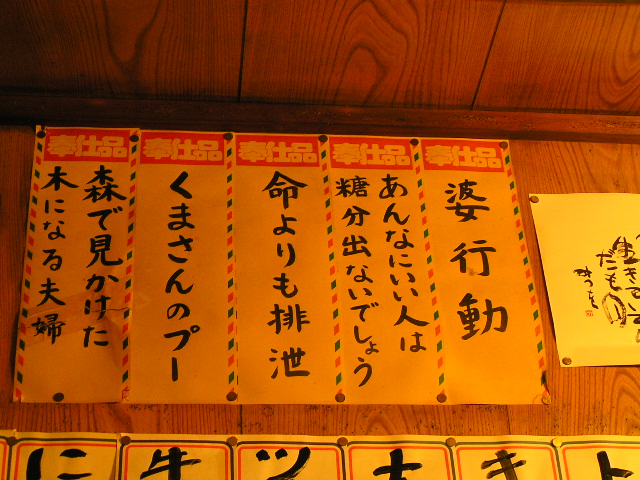 奉仕品
婆行動
奉仕品
あんなにいい人は
糖分出ないでしょう
奉仕品
命よりも排泄
奉仕品
くまさんのプー
奉仕品
森で見かけた
木になる夫婦
生きる
だもの
みつを
ト
キ
ナ
ツ
牛
に